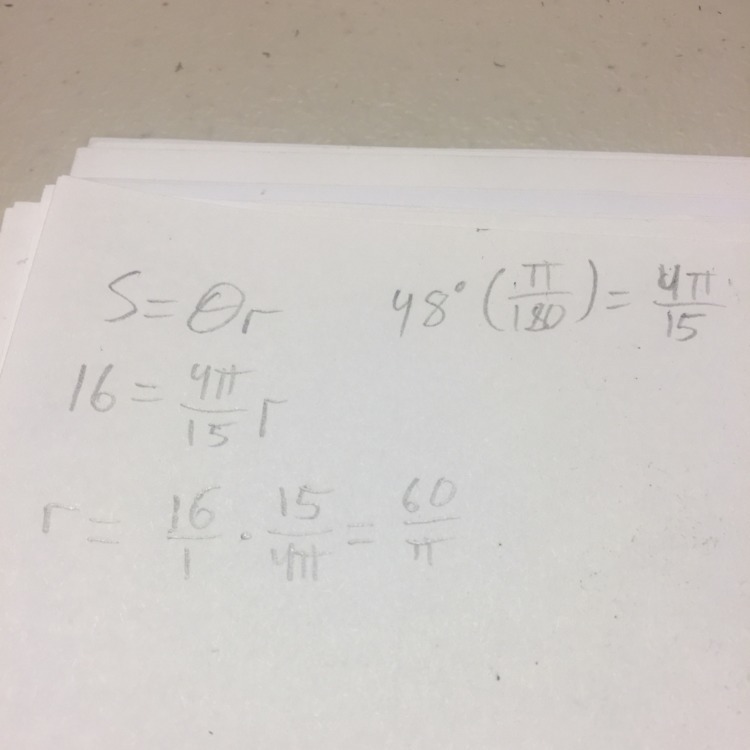 S = θr
48° (π/180) = 4π/15
16 = 4π/15 r
r = 16/1 · 15/4π = 60/π